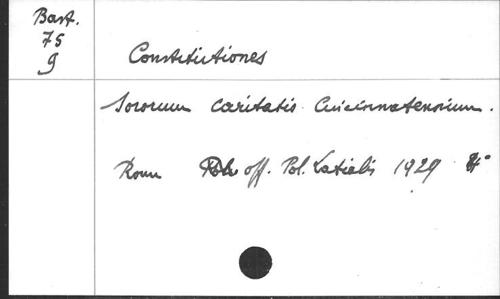 Bast.
75
9
Constitutiones
Sororum Caritatis Cincinnatensium.
Rom off. Pol. Latialis 1929